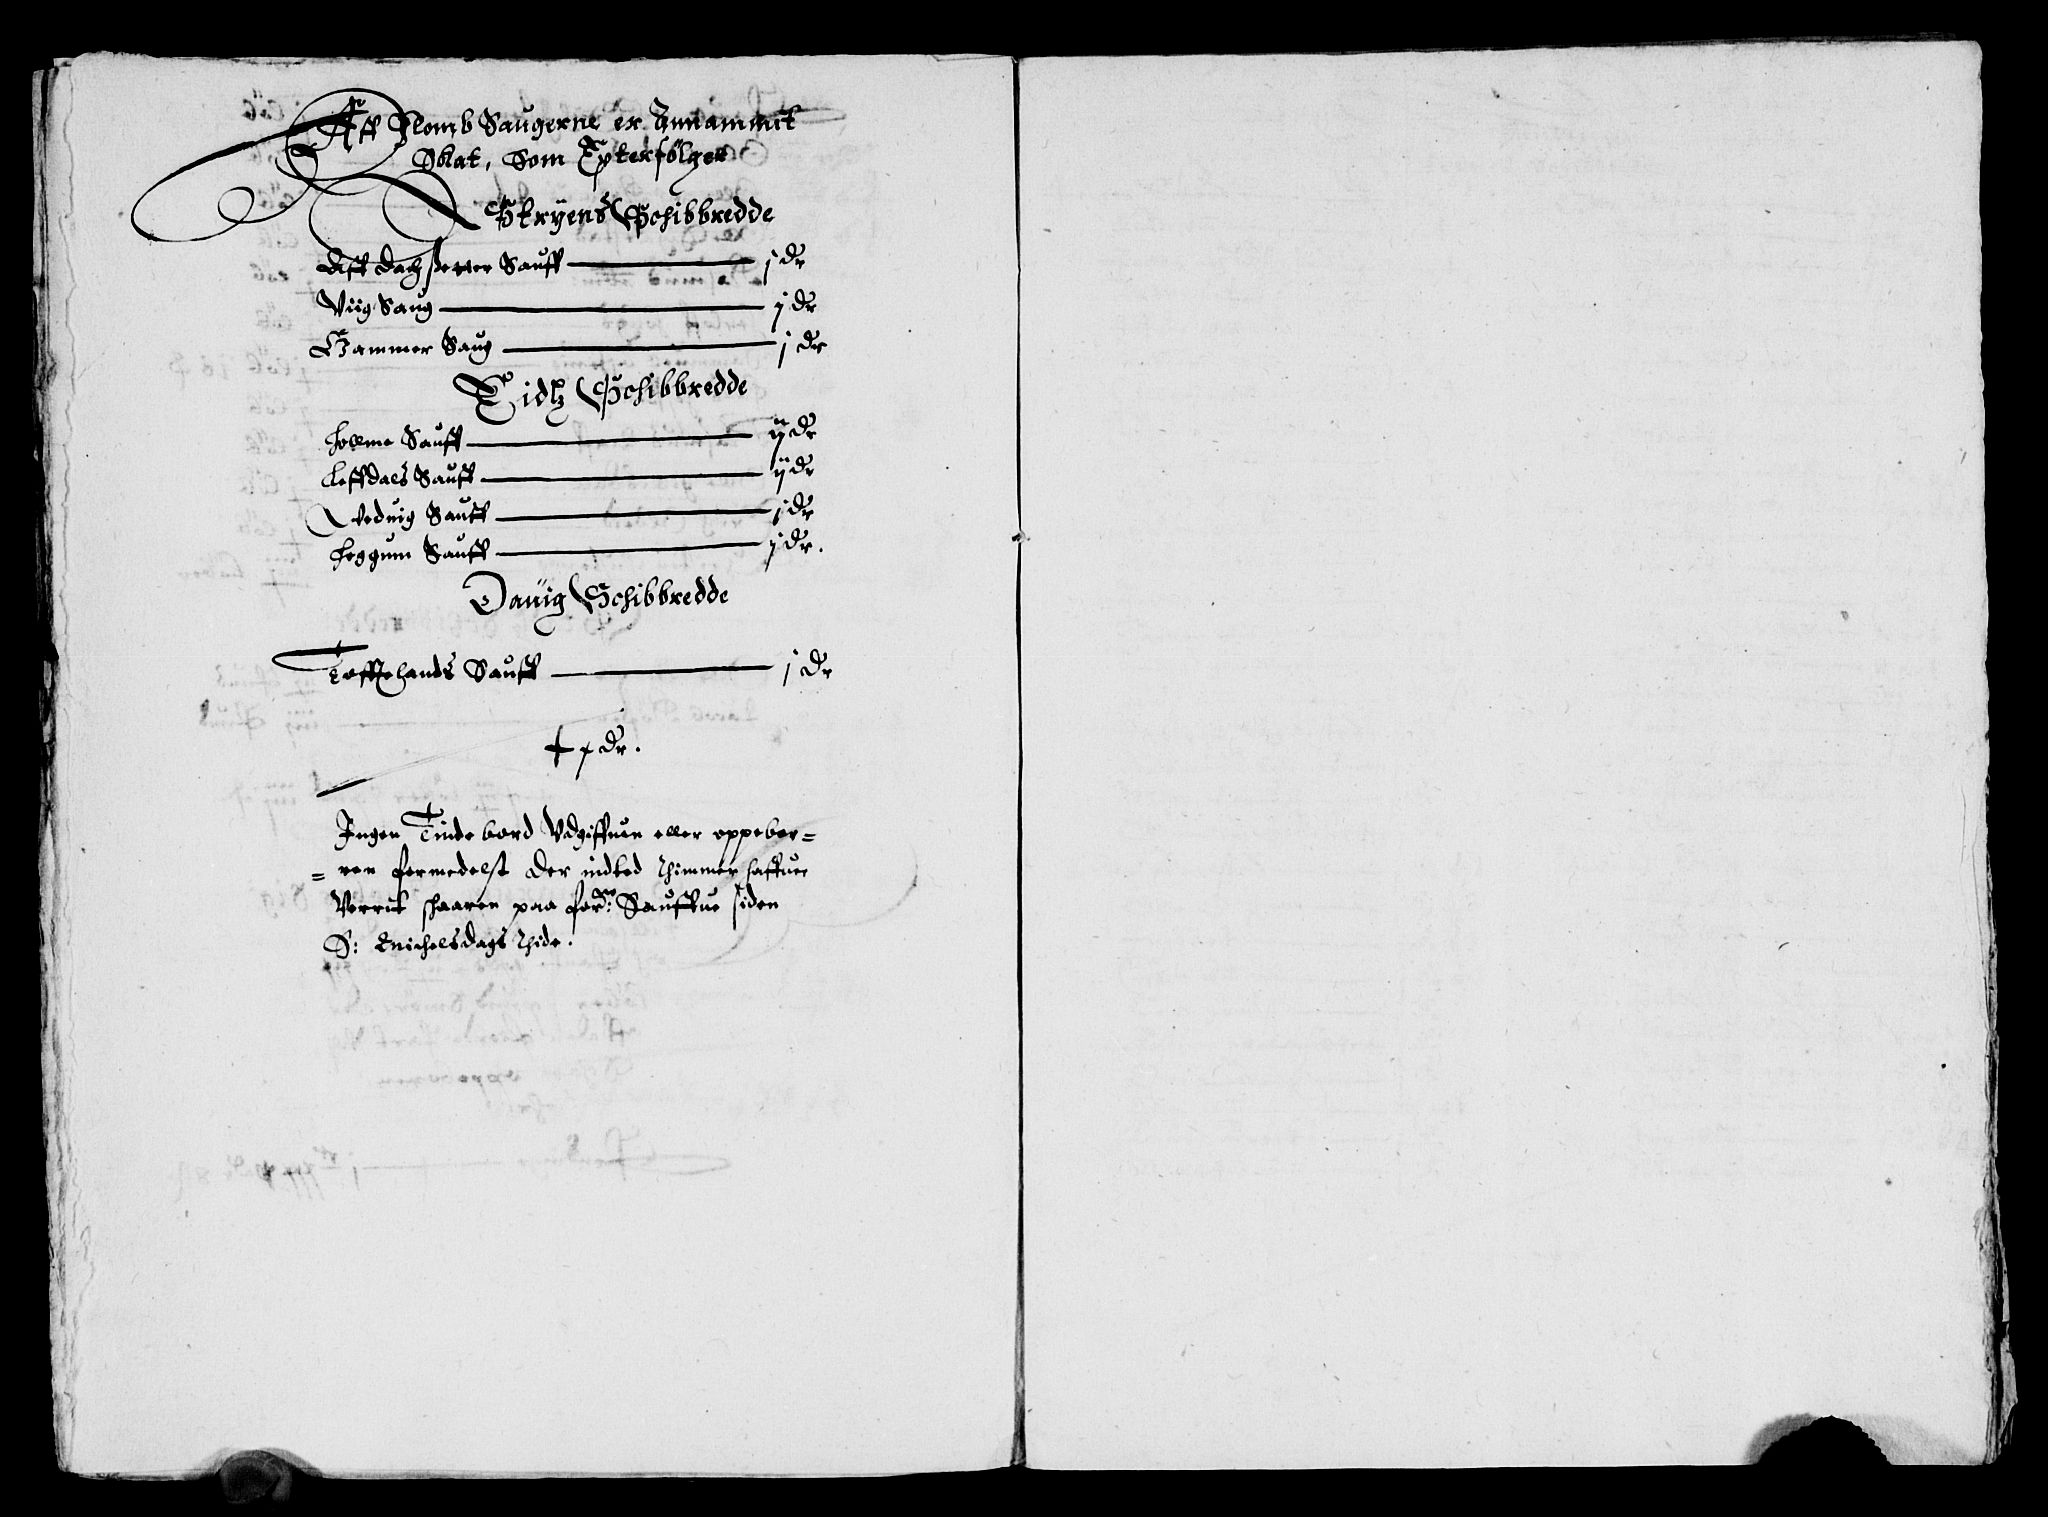 Aff Flomb Saugerne er Annammit
Skat, Som Epterfölger
Stryens Schibbredde
Aff Dachsetter Sauff — j dr
Viig Saug — j dr
Hammer Saug — j dr
Eidtz Schibbredde
Holme Sauff — ij dr
Leffdals Sauff — ij dr
Nedvig Sauff — j dr
Heggum Sauff — j dr.
Dauig Schibbredde
Tofftelands Sauff — j dr
+ x dr.
Ingen Tinde bord Vdgiffuen eller oppebor=
= ren formedelst der indted Thimmer haffuer
Verrit schaaren paa fordn: Sauffue siden
S: Michelsdags Thide.